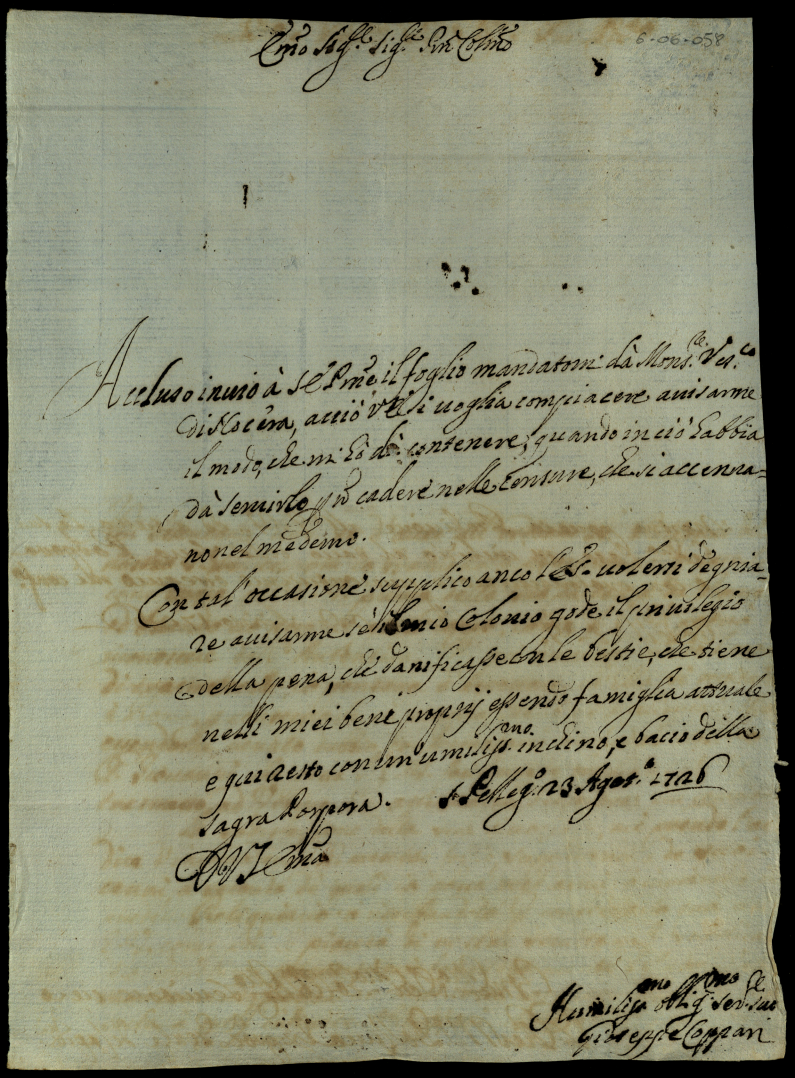 6-06-058
Em̃o Sig.re Sig.re Pñ Colmõ
Accluso inuio à S. E. Pm̃e il foglio mandatomi dà Mons.re Ves.co
di Nocera, acciò VE si uoglia compiacere auisarme
il modo, che mi hò dà contenere, quando in ciò habbia
dà seruirlo, p nõ cadere nelle Censure, che si accenna=
no nel medemo.
Con tal' occasione supplico anco l'Es. uolersi degnia=
re auisarme se il mio Colonio gode il priuilegio
della pena, che danificasse con le bestie, che tiene
nelli miei beni proprij essendo famiglia attuale
e qui resto con um' umiliss.mo inchino, e bacio della
sagra Porpora. S. Pelleg.o 23 Agos.o 1726
D V Em̃a
Humiliss.mo oblig.mo ser.re suo
Giuseppe Coppari